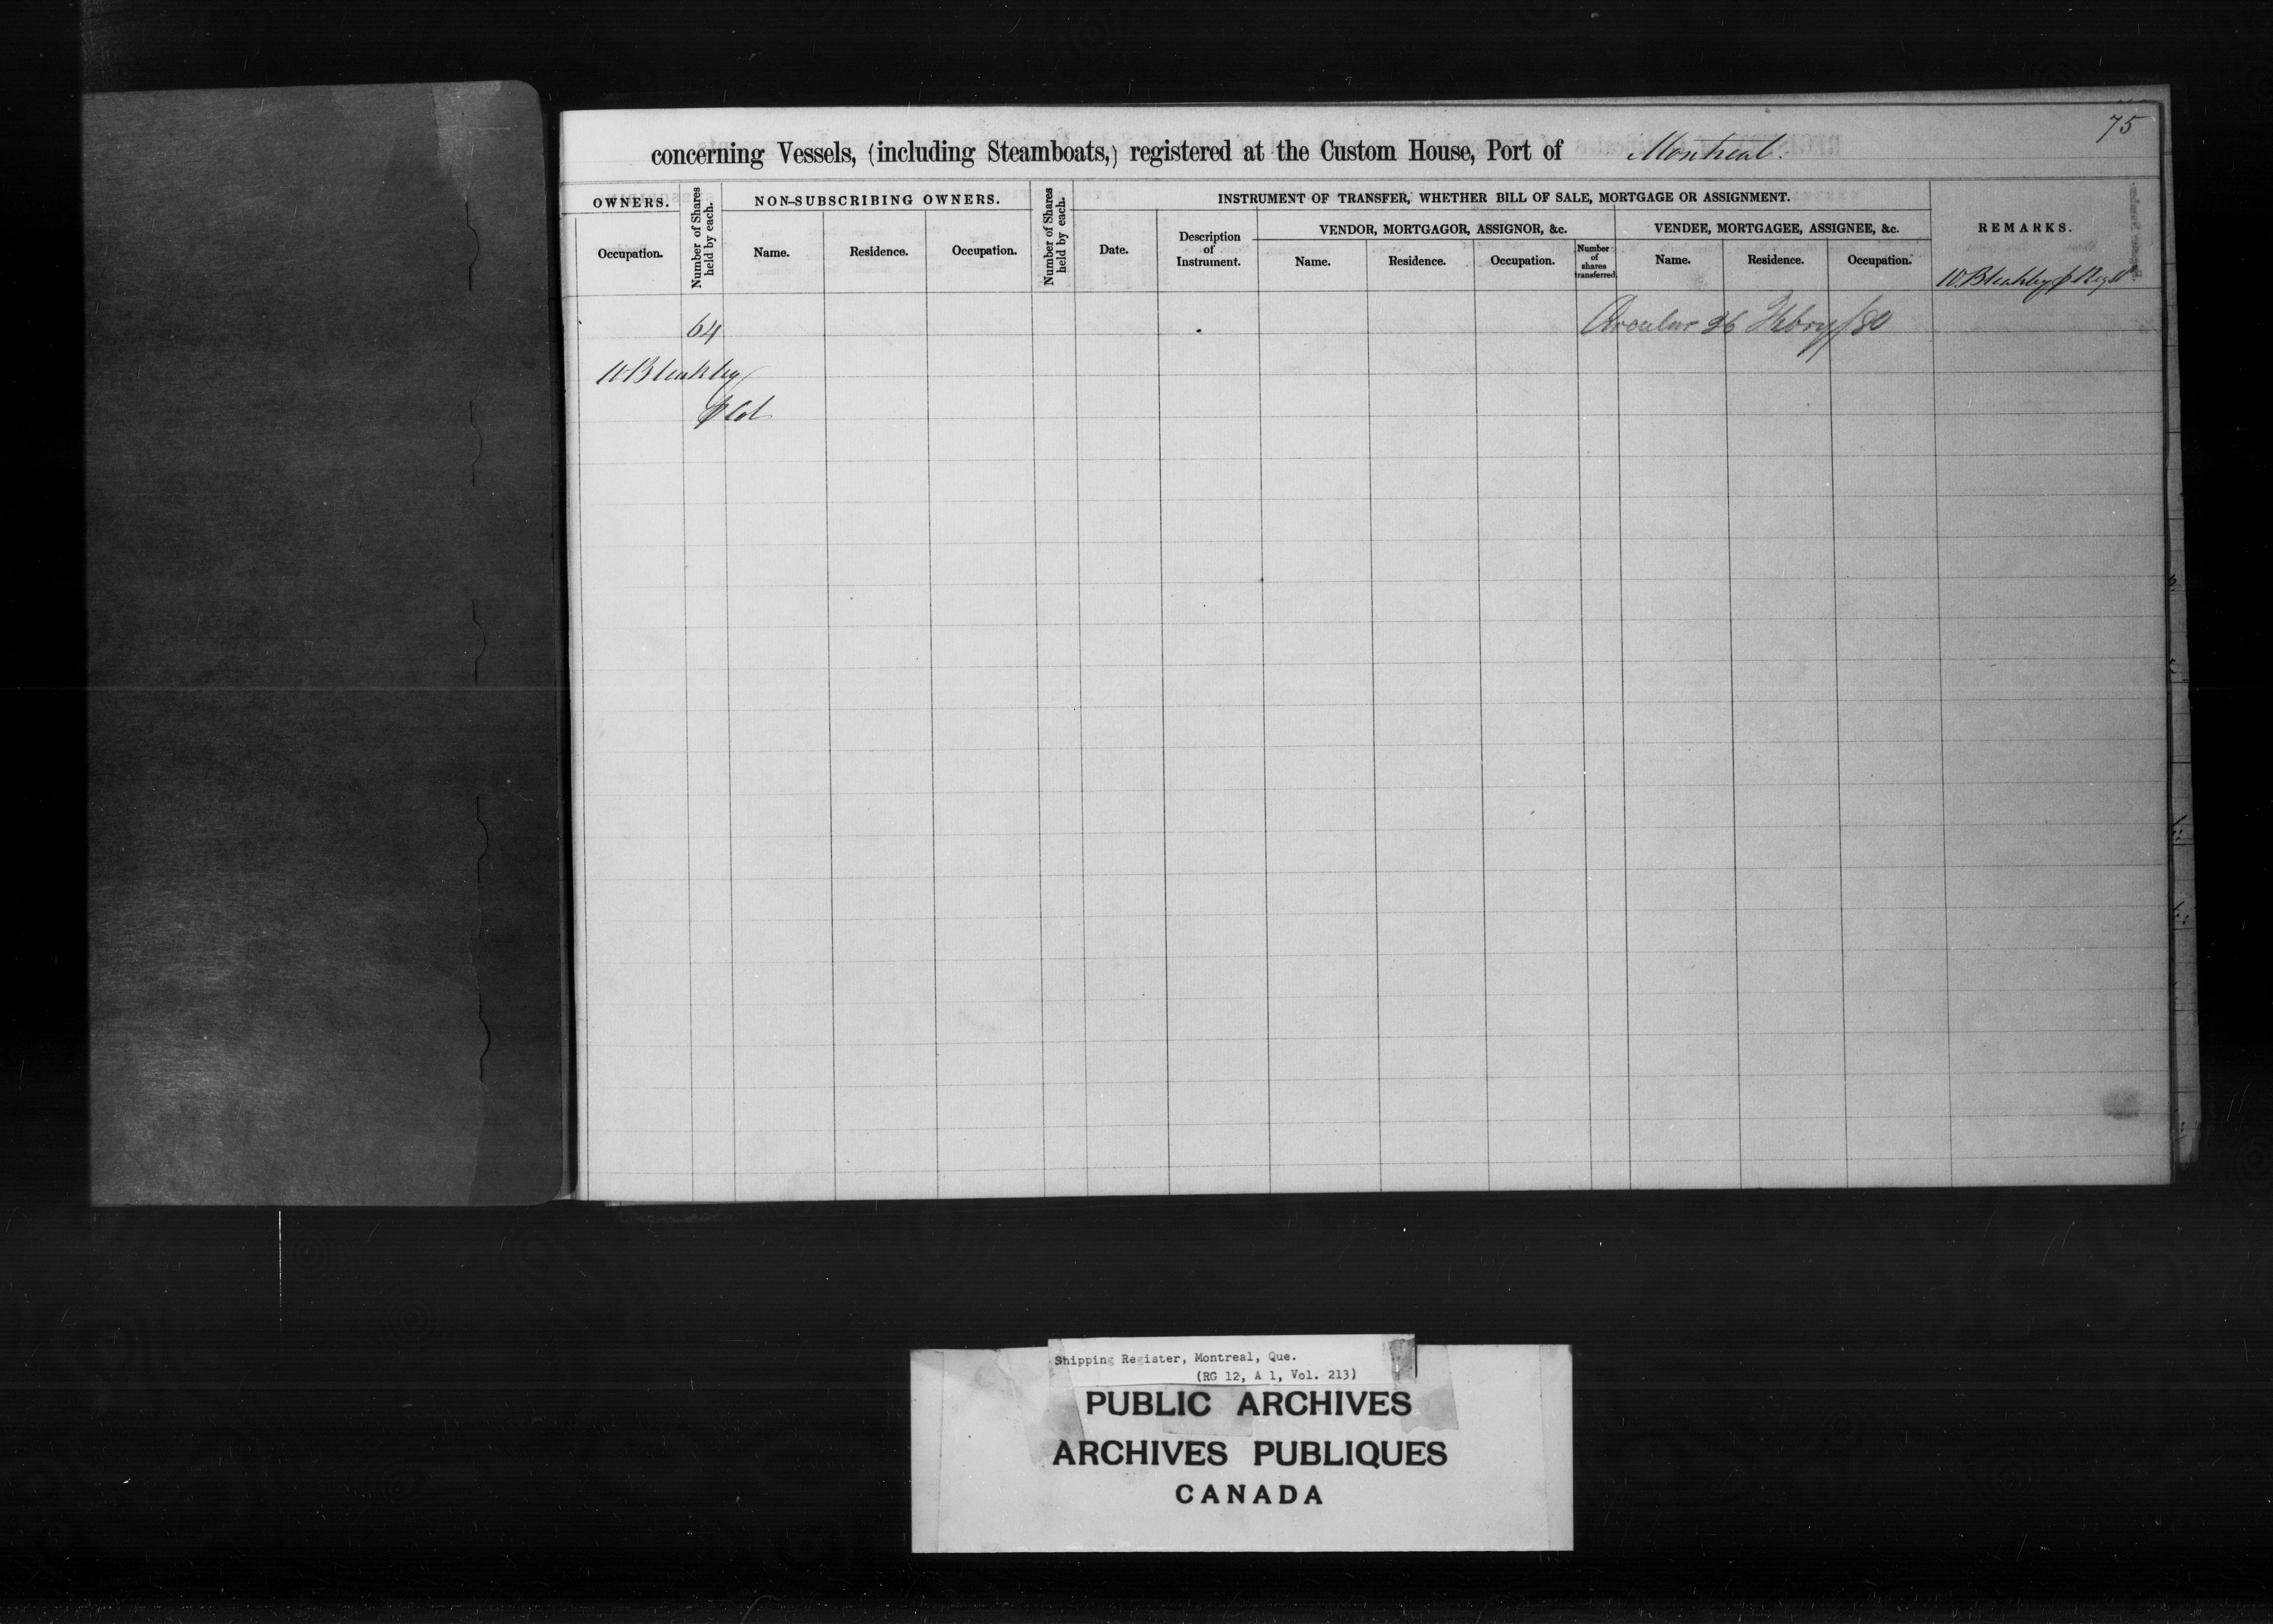 75
concerning Vessels, (including Steamboats,) registered at the Custom House, Port of Montreal.
OWNERS.
Number of Shares held by each.
NON-SUBSCRIBING OWNERS.
Number of Shares held by each.
INSTRUMENT OF TRANSFER, WHETHER BILL OF SALE, MORTGAGE OR ASSIGNMENT.
REMARKS.
VENDOR, MORTGAGOR, ASSIGNOR, &c.
VENDEE, MORTGAGEE, ASSIGNEE, &c.
Occupation.
Name.
Residence.
Occupation.
Date.
Description of Instrument.
Name.
Residence.
Occupation.
Number of shares transferred.
Name.
Residence.
Occupation.
W. Bleakley
64
Circular 26 Febry/80
W Bleakley
Shipping Register, Montreal, Que.
(RG 12, A 1, Vol. 213)
PUBLIC ARCHIVES
ARCHIVES PUBLIQUES
CANADA